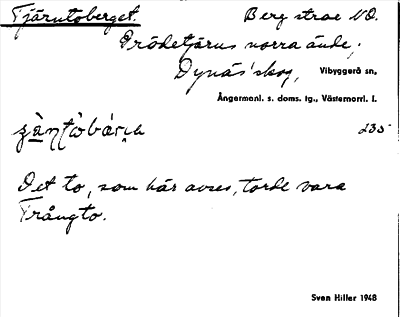 Tjärntoberget. Berg strax NO.
Prödetjärns norra ände,
Dynäs' skog, Vibyggerå sn,
Ångermanl. s. doms. tg., Västernorrl. l.
235
Det to, som här avses, torde vara
Trångto.
Sven Hiller 1948